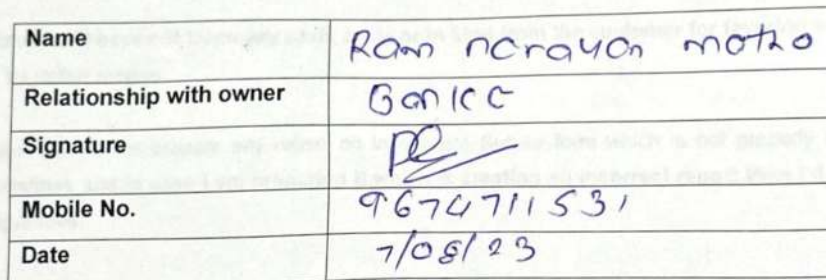 Name Ram narayan mотho
Relationship with owner
Signature
Mobile No. 9674711531
Date 7/08/23